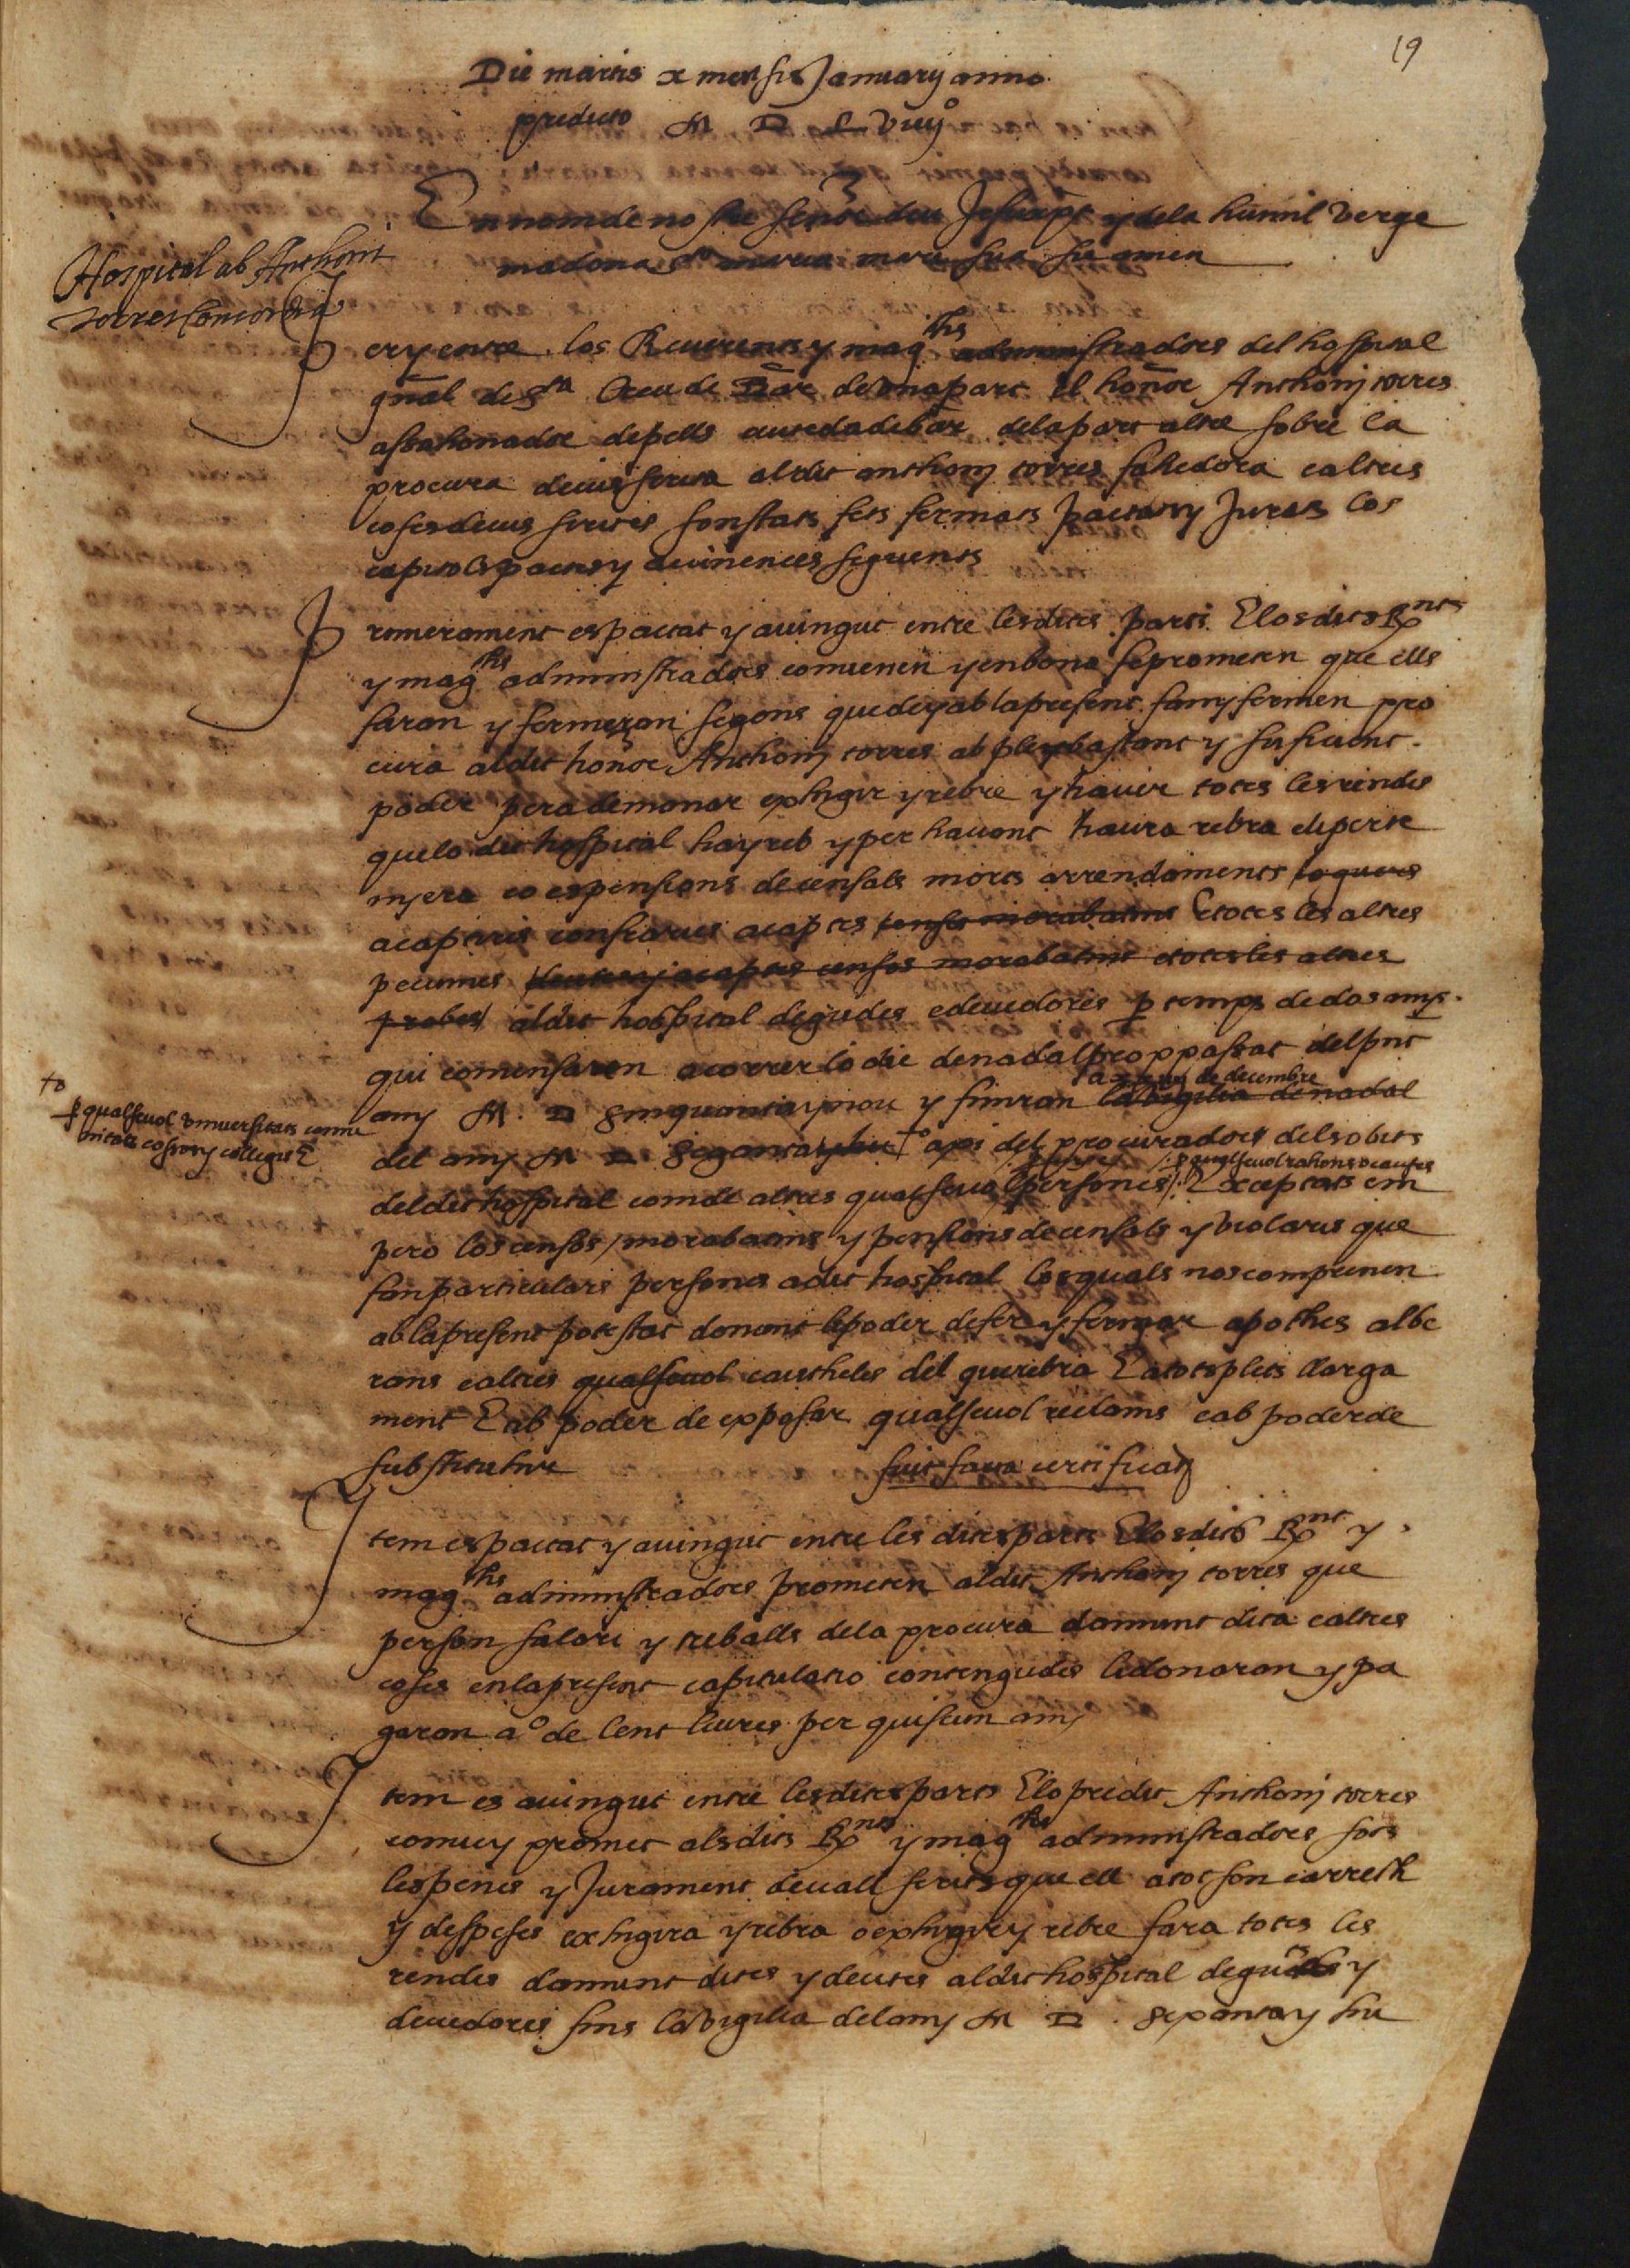 19
Die martis x mensis Januarij anno
predicto M D L viiijº
En nom de nostre senor deu Jesuxpt y dela humil verge
madona sta maria mare sua sie amen
Hospital ab Anthoni
torres concordia
Per y entre los Reuerents y magchs administradors del hospital
gñal de sta Creu de Bar de una part E l honor Anthonj torres
assahonador de pells ciutedadebar dela part altre sobre la
procura deuis scrita al dit anthonj torres fahedora e altres
coses deuis scrites son stats fets fermats pactats y Jurats los
capitols pactes y auinences seguents
Primerament es pactat y auingut entre les dites parts E los dits Rnts
y magchs administradors conuenen y en bona fe prometen que ells
faran y fermeran segons que de y ab la present fan y fermen pro
cura al dit honor Anthonj torres ab ple y bastant y suficient
poder pera demanar exhigir y rebre y hauer totes les rendes
que lo dit hospital ha y reb y per hauant haura rebra e li perte
nyera co es pensions de censals morts arrendaments loguers
acapteris consiarues acaptes censos morabatins E totes les altres
pecunies deutes y acaptes censos morabatins e totes les altres
robes al dit hospital degudes e deuedores p temps de dos anys
qui comensaren a correr lo die de nadal prop passat del pnt
any M. D sinquanta y nou y finiran la vigilia de nadal
a xxiiij de decembre
to
p qualseuol vniuersitats comu
nitats cofrary collegis E
del any M D xixanta y hu to axi dels procuradors dels obits
del dit hospital com de altres qualseuol persones E exceptats em
p qualseuol rahons o causes
pero los censos morabatins y pensions de censals y violaris que
fan particulars persones a dit hospital los quals nos comprenen
ab la present potestat donant li poder de fer y fermar apothes albe
rans e altres qualseuol cautheles del que rebra E a tots plets llarga
ment E ab poder de exposar qualseuol reclams e ab poder de
substituhir
fuit facta certificat
Item es pactat y auingut entre les dites parts E los dits Rnt y
magchs administradors prometen al dit Anthonj torres que
per son salari y treballs dela procura damunt dita e altres
coses en la present capitulatio contengudes li donaran y pa
garan aº de Cent liures per quiscun any
Item es auingut entre les dites parts E lo predit Anthonj torres
conue y promet als dits Rnts y magchs administradors sots
les penes y Jurament deuall scrits que ell a tot son carrech
y despeses exhigira y rebra o exhigir y rebre fara totes les
rendes damunt dites y deutes al dit hospital degudes y
deuedores fins la vigilia del any M D . sixanta y hu